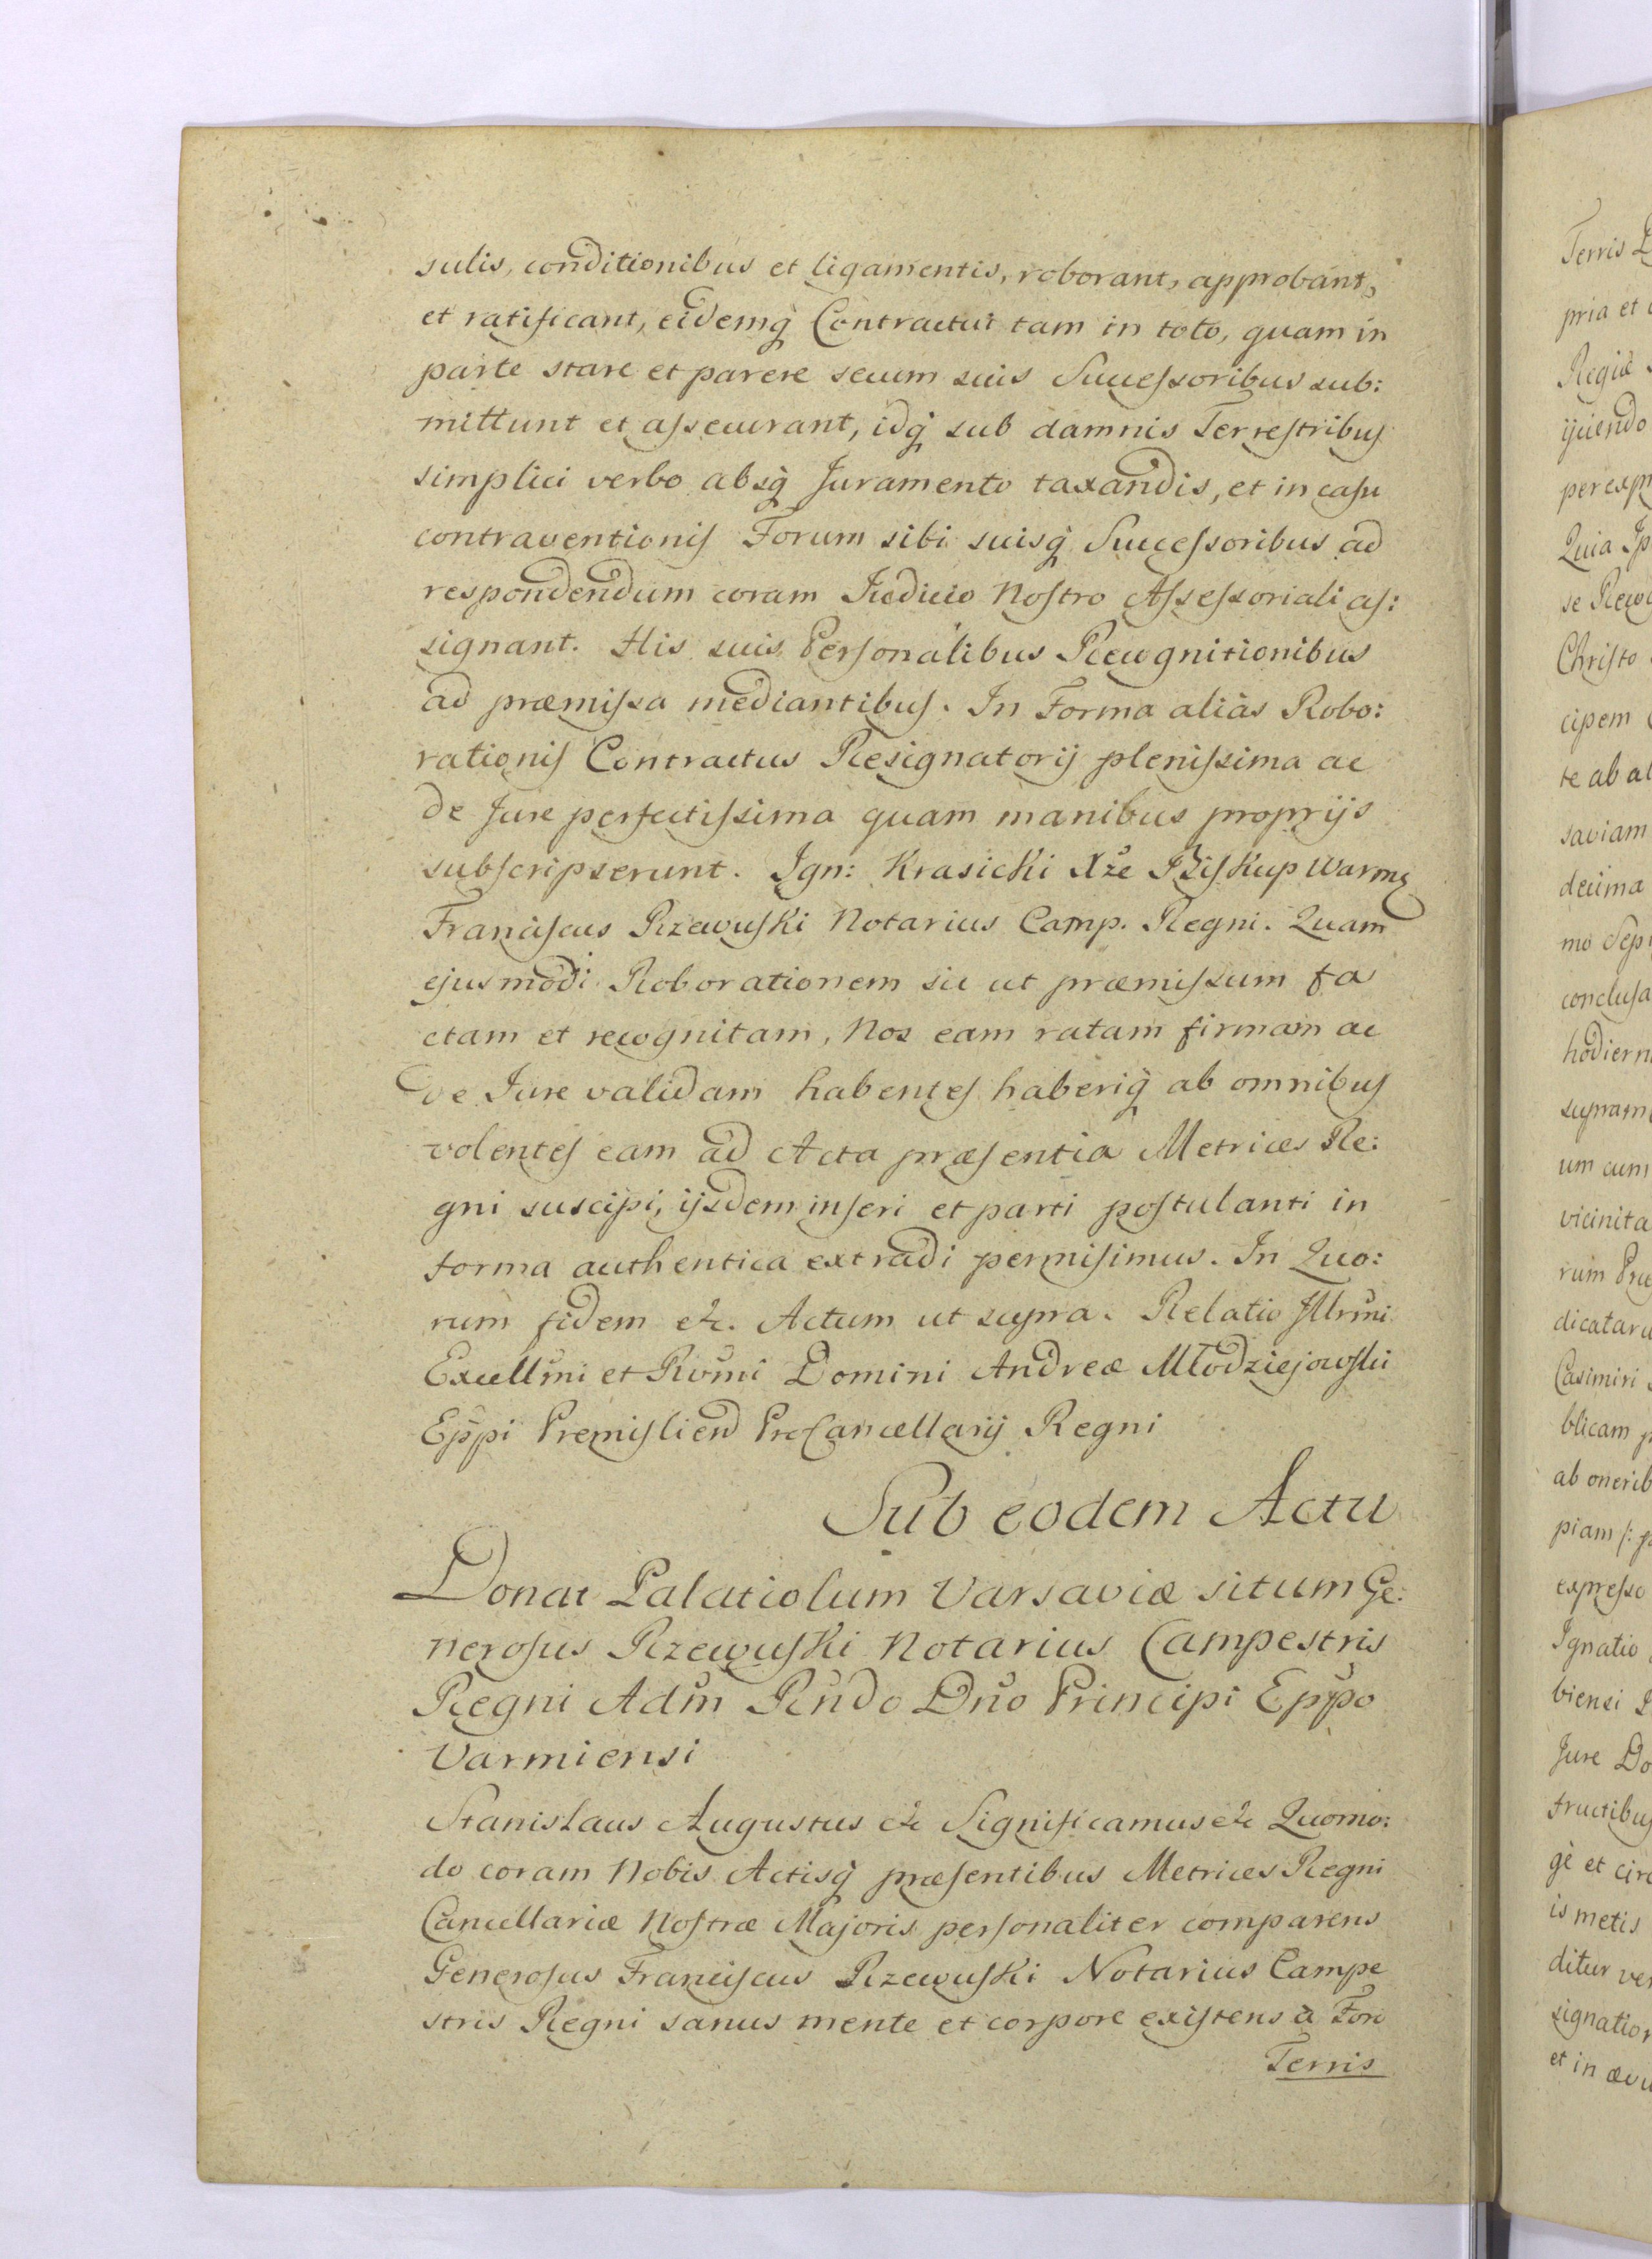 sulis, conditionibus et ligamentis, roborant, approbant,
et ratificant, eidemq̀ Contractui tam in toto, quam in
parte stare et parere secum suis Successoribus sub:
mittunt et assecurant, idq̀ sub damnis Terrestribus
simplici verbo absq̀ Juramento taxandis, et in casu
contraventionis Forum sibi suisq̀ Successoribus ad
respondendum coram Judicio Nostro Assessoriali as:
signant. His suis Personalibus Recognitionibus
ad præmissa mediantibus. In Forma aliàs Robo:
rationis Contractus Resignatorij plenissima ac
de Jure perfectissima quam manibus proprijs
subscripserunt. Ign: Krasicki Xże Biskup Warmȩ
Franciscus Rzewuski Notarius Camp. Regni. Quam
ejusmodi Roborationem sic ut præmissum fa
ctam et recognitam, Nos eam ratam firmam ac
de Jure validam habentes haberiq̀ ab omnibus
volentes eam ad Acta præsentia Metrices Re:
gni suscipi, ijsdem inseri et parti postulanti in
forma authentica extradi permisimus. In Quo:
rum fidem etc. Actum ut supra. Relatio Illrmi
Excellmi et Rvmi Domini Andreæ Młodziejowski
Eppi Premislien ProCancellarij Regni
Sub eodem Actu
Donat Palatiolum Varsaviæ situm Ge:
nerosus Rzewuski Notarius Campestris
Regni Adm Rndo Dno Principi Eppo
Varmiensi
Stanislaus Augustus etc Significamus etc Quomo:
do coram Nobis Actisq̀ præsentibus Metrices Regni
Cancellariæ Nostræ Majoris personaliter comparens
Generosus Franciscus Rzewuski Notarius Campe
stris Regni sanus mente et corpore existens à Foro
Terris
Terris
pria et
Regiæ
perexp
Quia Ip
Christo
cipem
te ab al
saviam
decima
mo Sep
conclusa
hodiern
um cum
vicinita
dicatar
Casimiri
blicam p
ab onerib
piam /: p
expresse
Ignatio
biensi
Jure Do
fructibus
gè et circ
is metis
ditur ver
signation
et in ævu